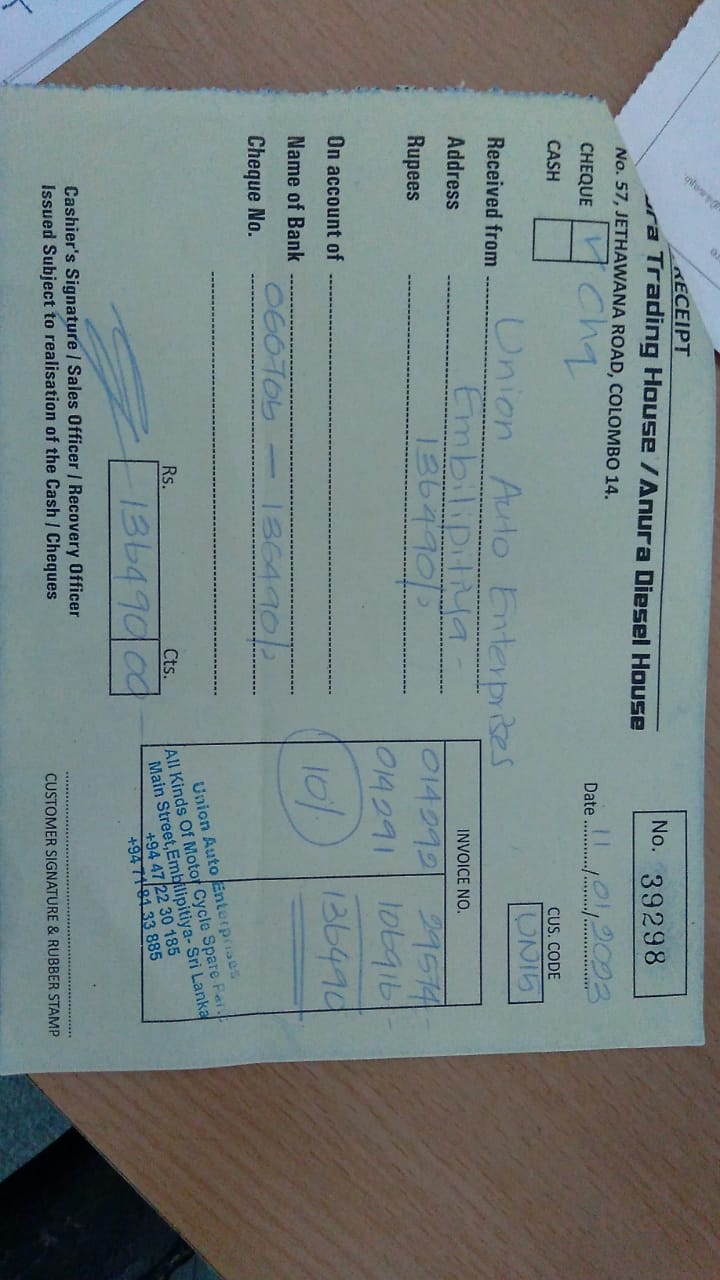 RECEIPT
ra Trading House / Anura Diesel House
No. 57, JETHAWANA ROAD, COLOMBO 14.
No. 39298
CHEQUE ✓ Chq
CASH
Date 11/01/2023
CUS. CODE
UN15
Received from Union Auto Enterprises
Address Embilipitiya -
Rupees 136490/=
On account of
Name of Bank
Cheque No. 060706 - 136490/=
Rs. Cts.
136490 00
INVOICE NO.
014292 29574 -
014291 106916 -
10% 136490
Union Auto Enterprises
All Kinds Of Motor Cycle Spare
Main Street, Embilipitiya- Sri Lanka
+94 47 22 30 185
+94 71 81 33 885
Cashier's Signature / Sales Officer / Recovery Officer
Issued Subject to realisation of the Cash / Cheques
CUSTOMER SIGNATURE & RUBBER STAMP